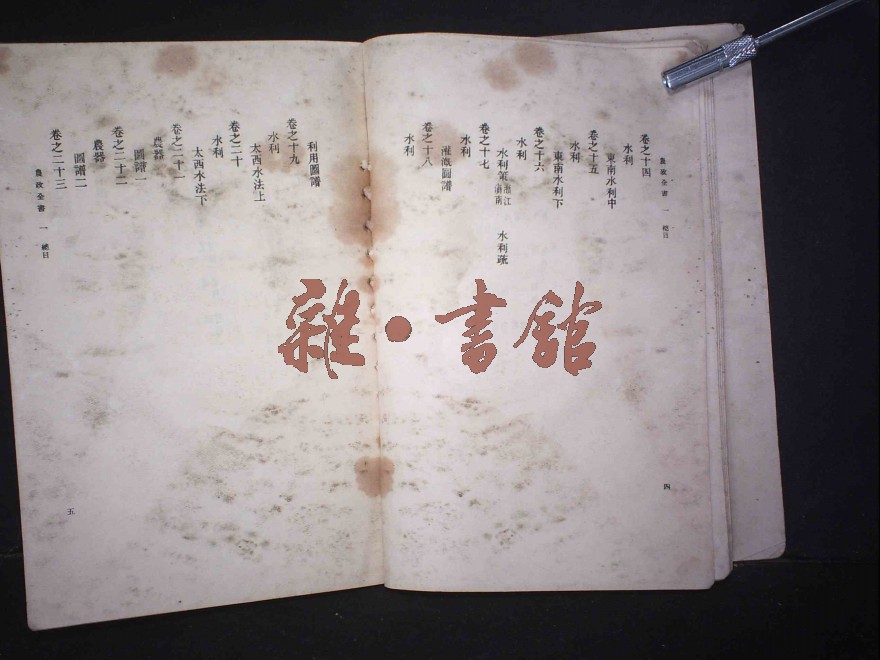 農政全書 一 總目
卷之十四
水利
東南水利中
卷之十五
水利
東南水利下
卷之十六
水利
水利策 浙江 滇南 水利疏
卷之十七
水利
灌漑圖譜
卷之十八
水利
四
利用圖譜
卷之十九
水利
太西水法上
卷之二十
水利
太西水法下
卷之二十一
農器
圖譜一
卷之二十二
農器
圖譜二
卷之二十三
農政全書 一 總目
五
雜·書館